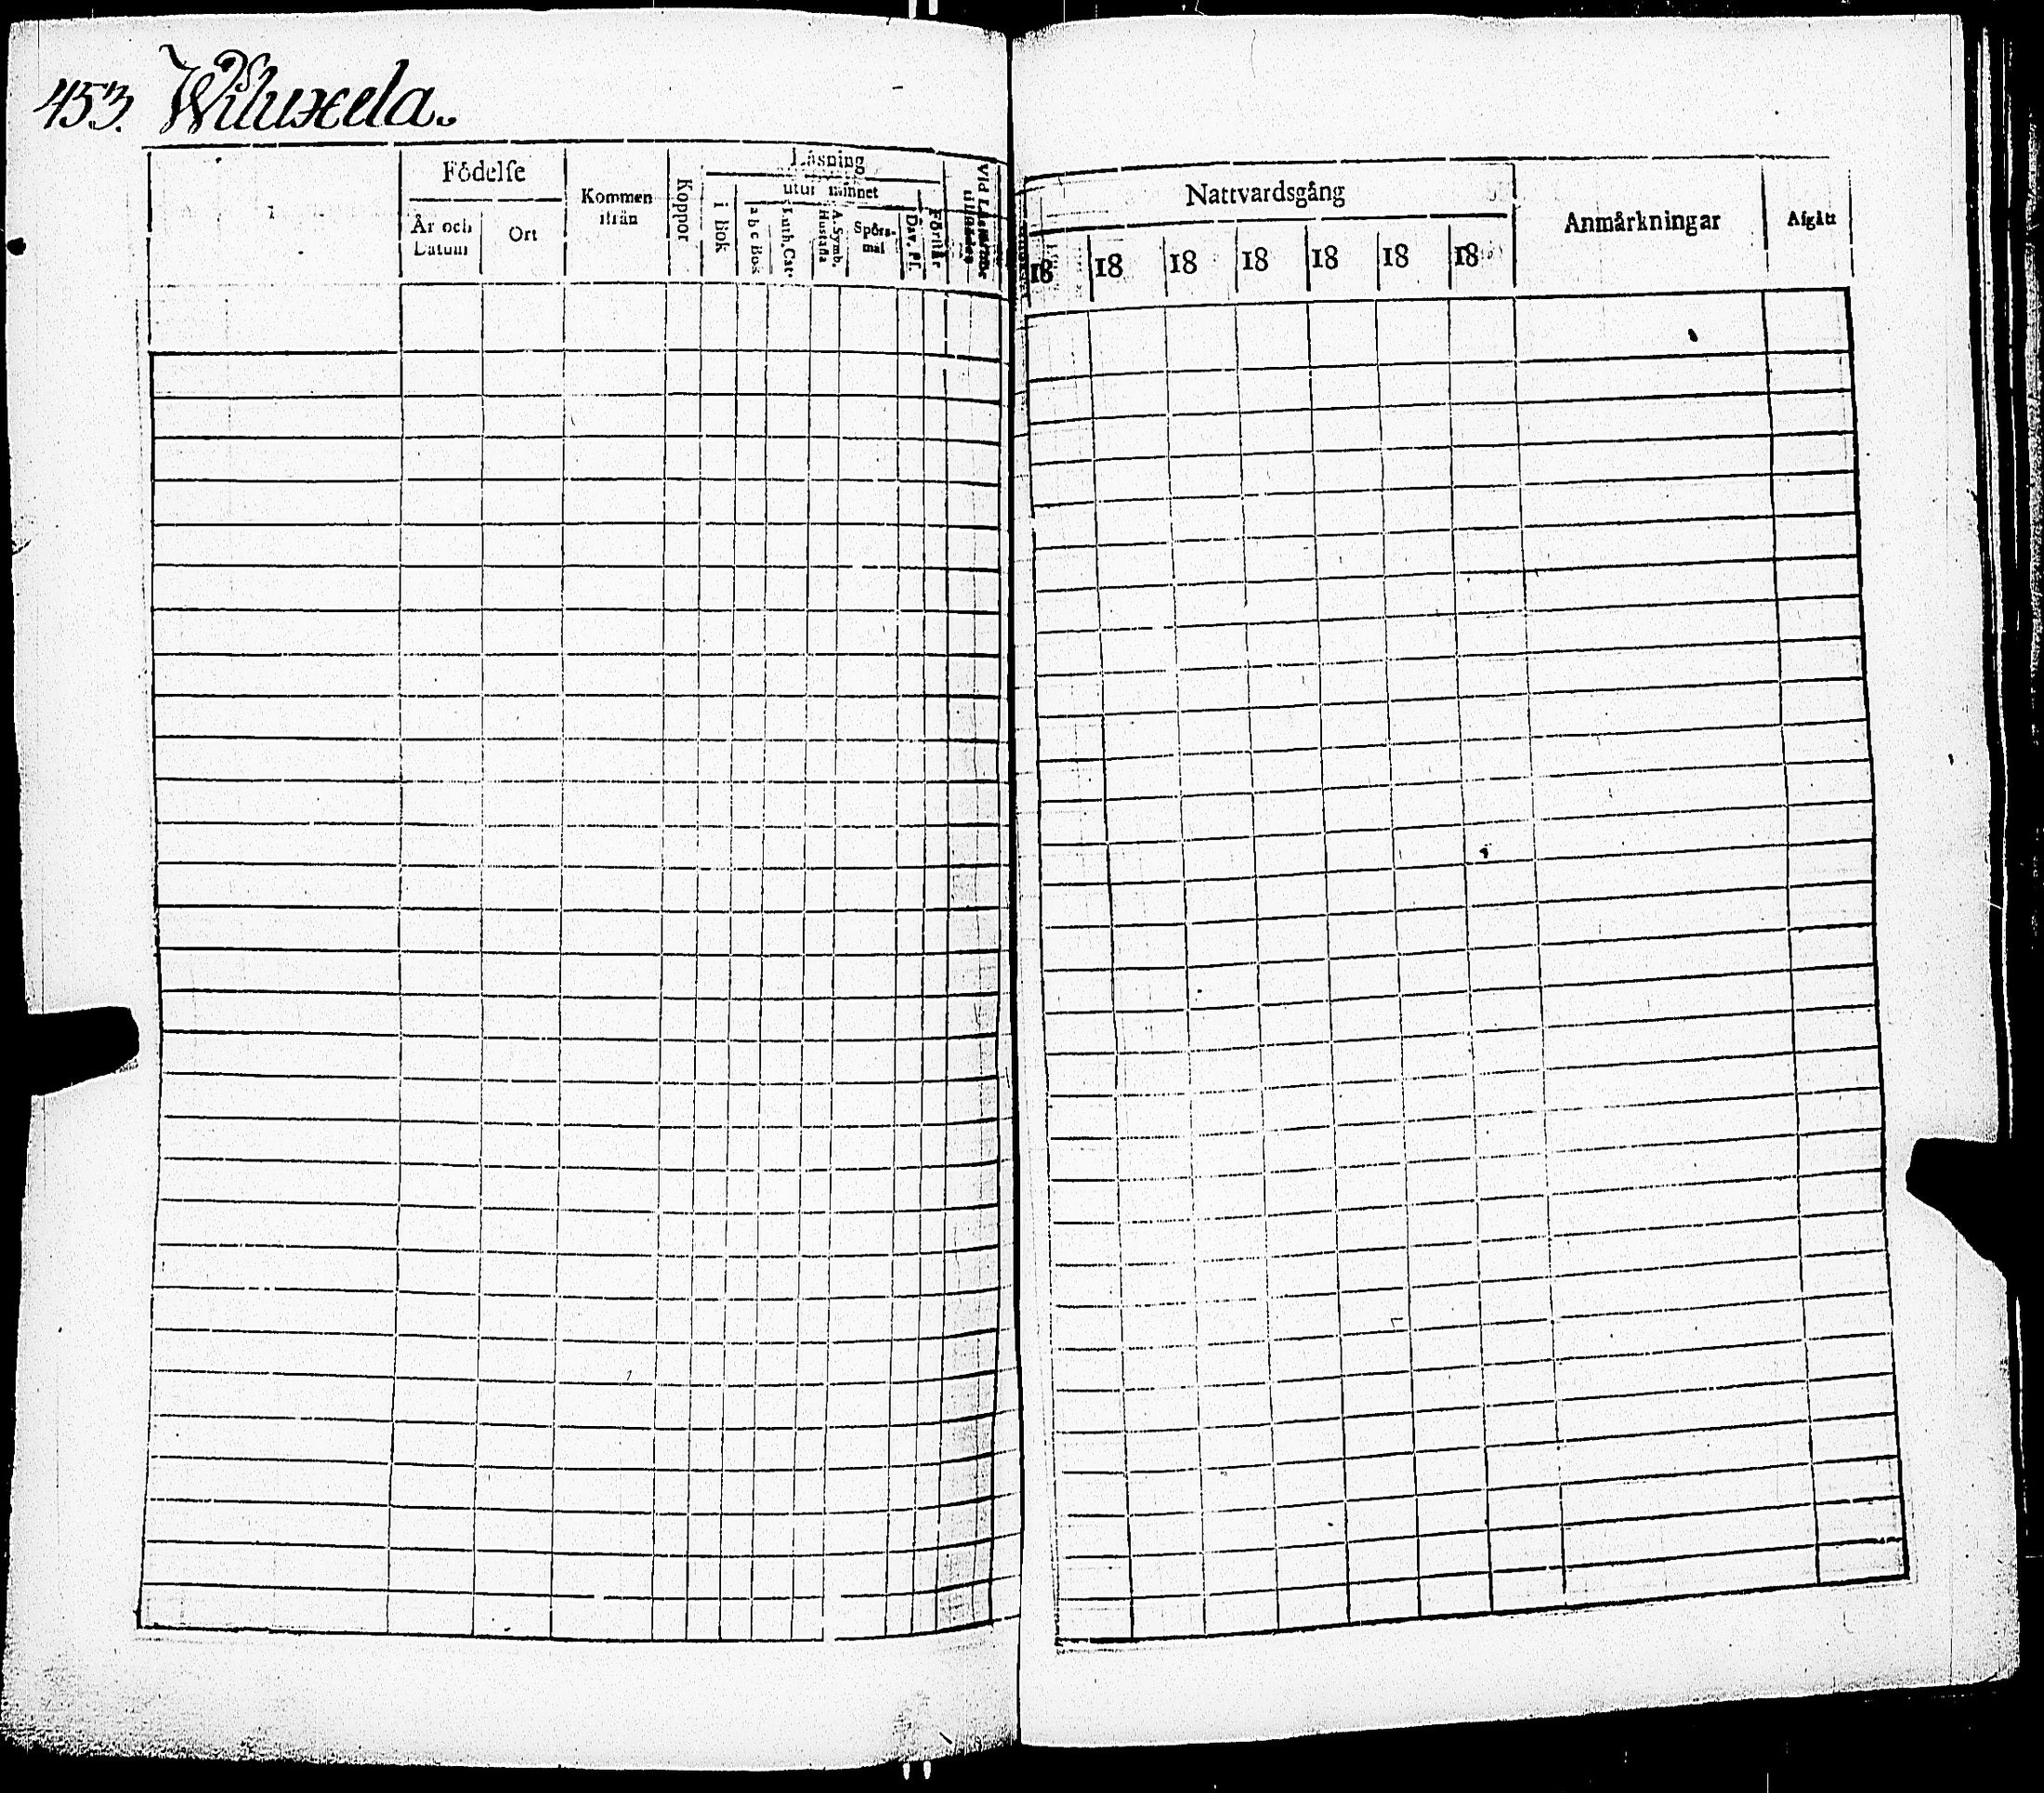 453. Wiluxela.
Födelse
År och Datum
Ort
Kommen ifrån
Koppor
Läsning
i Bok
utur minnet
a b c Bok
Luth. Cat.
A. Symb.
Hustafla
Spörs-
mål
Dav. Ps.
Förstår
Nattvardsgång
18 18 18 18 18 18 18
Anmärkningar
Afgått